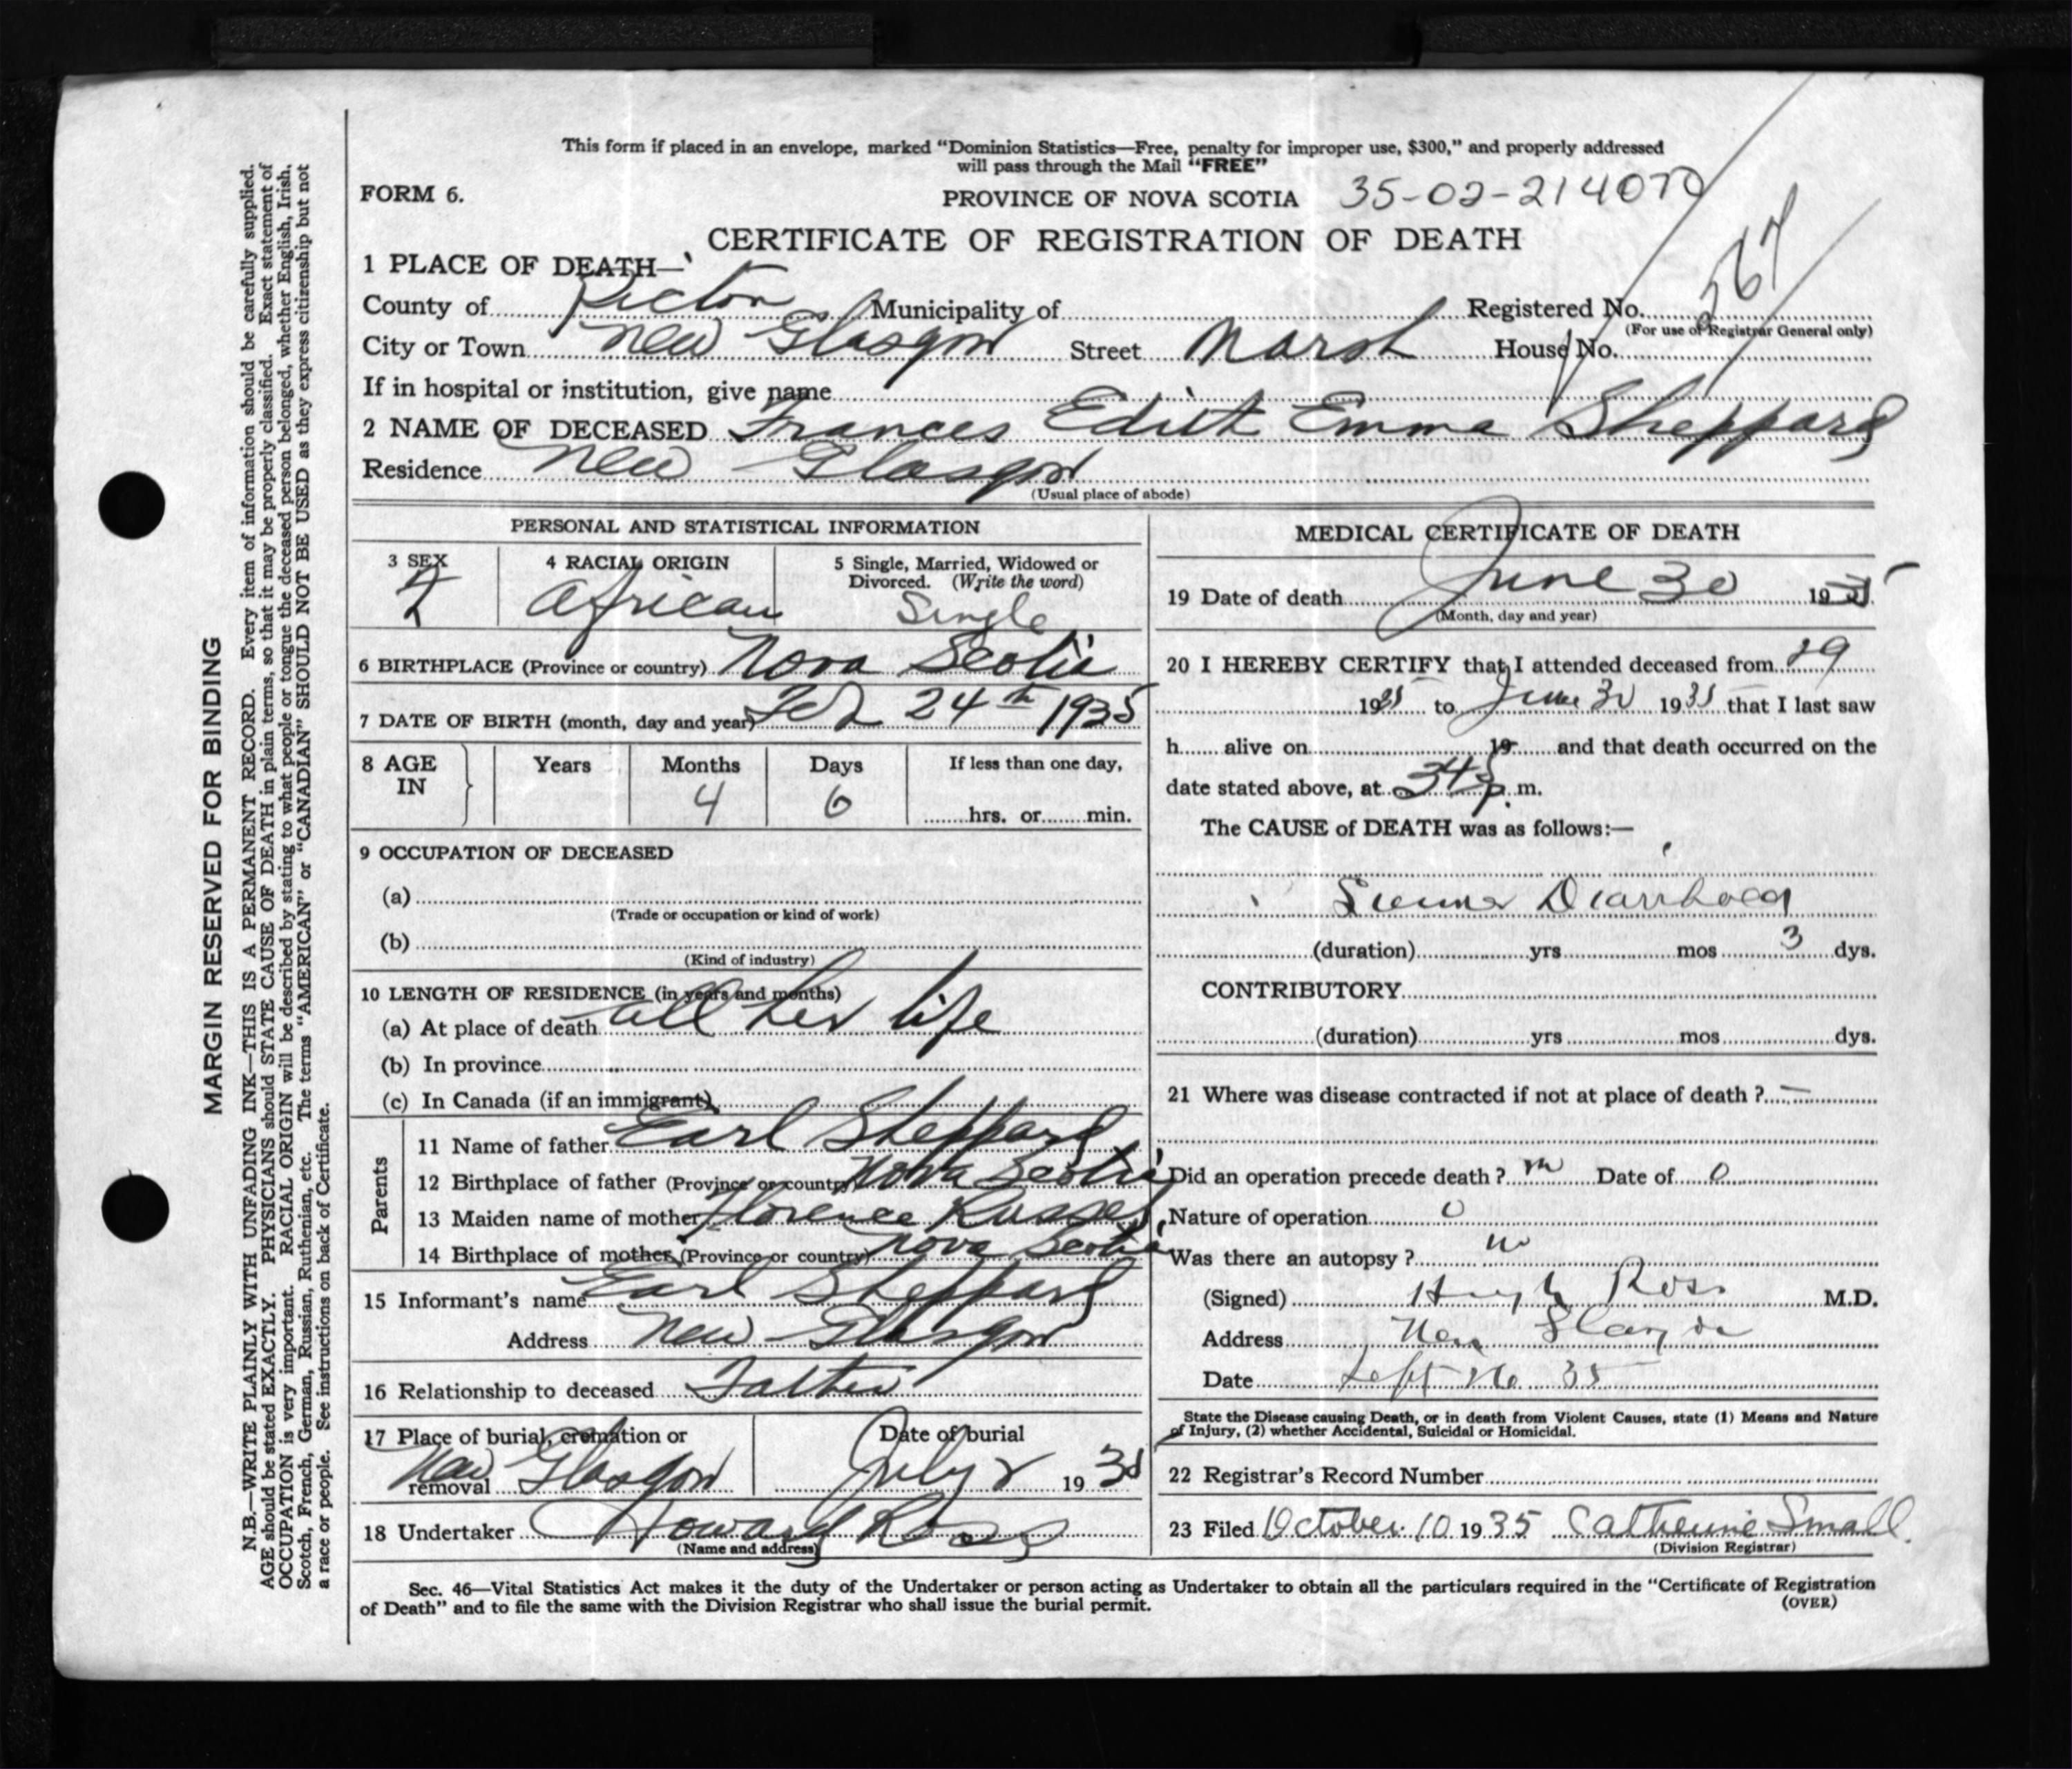 This form if placed in an envelope, marked "Dominion Statistics—Free, penalty for improper use, $300," and properly addressed
will pass through the Mail "FREE"
FORM 6.
PROVINCE OF NOVA SCOTIA 35-02-214070
CERTIFICATE OF REGISTRATION OF DEATH
1 PLACE OF DEATH—
County of Pictou Municipality of Registered No. 267
(For use of Registrar General only)
City or Town New Glasgow Street Marsh House No.
If in hospital or institution, give name
2 NAME OF DECEASED Frances Edith Emma Sheppard
Residence New Glasgow
(Usual place of abode)
PERSONAL AND STATISTICAL INFORMATION
3 SEX 4 RACIAL ORIGIN 5 Single, Married, Widowed or
Divorced. (Write the word)
F African Single
6 BIRTHPLACE (Province or country) Nova Scotia
7 DATE OF BIRTH (month, day and year) Feb 24th 1935
8 AGE IN Years Months Days If less than one day,
4 6 hrs. or min.
9 OCCUPATION OF DECEASED
(a)
(Trade or occupation or kind of work)
(b)
(Kind of industry)
10 LENGTH OF RESIDENCE (in years and months)
(a) At place of death all her life
(b) In province
(c) In Canada (if an immigrant)
Parents
11 Name of father Earl Sheppard
12 Birthplace of father (Province or country) Nova Scotia
13 Maiden name of mother Florence Russel
14 Birthplace of mother (Province or country) Nova Scotia
15 Informant's name Earl Sheppard
Address New Glasgow
16 Relationship to deceased Father
17 Place of burial, cremation or Date of burial
removal New Glasgow July 2 1935
18 Undertaker Howard Ross
(Name and address)
MEDICAL CERTIFICATE OF DEATH
19 Date of death June 30 1935
(Month, day and year)
20 I HEREBY CERTIFY that I attended deceased from 29
1935 to June 30 1935 that I last saw
h alive on 19 and that death occurred on the
date stated above, at p.m.
The CAUSE of DEATH was as follows:—
Summer Diarrhoea
(duration) yrs mos 3 dys.
CONTRIBUTORY
(duration) yrs mos dys.
21 Where was disease contracted if not at place of death ? —
Did an operation precede death ? no Date of 0
Nature of operation 0
Was there an autopsy ? no
(Signed) Hugh Ross M.D.
Address New Glasgow
Date Sept 35
State the Disease causing Death, or in death from Violent Causes, state (1) Means and Nature
of Injury, (2) whether Accidental, Suicidal or Homicidal.
22 Registrar's Record Number
23 Filed October 10 1935 Catherine Small
(Division Registrar)
Sec. 46—Vital Statistics Act makes it the duty of the Undertaker or person acting as Undertaker to obtain all the particulars required in the "Certificate of Registration
of Death" and to file the same with the Division Registrar who shall issue the burial permit.
(OVER)
MARGIN RESERVED FOR BINDING
N.B.—WRITE PLAINLY WITH UNFADING INK—THIS IS A PERMANENT RECORD. Every item of information should be carefully supplied.
AGE should be stated EXACTLY. PHYSICIANS should STATE CAUSE OF DEATH in plain terms, so that it may be properly classified. Exact statement of
OCCUPATION is very important. RACIAL ORIGIN will be described by stating to what people or tongue the deceased person belonged, whether English, Irish,
Scotch, French, German, Russian, Ruthenian, etc. The terms "AMERICAN" or "CANADIAN" SHOULD NOT BE USED as they express citizenship but not
a race or people. See instructions on back of Certificate.